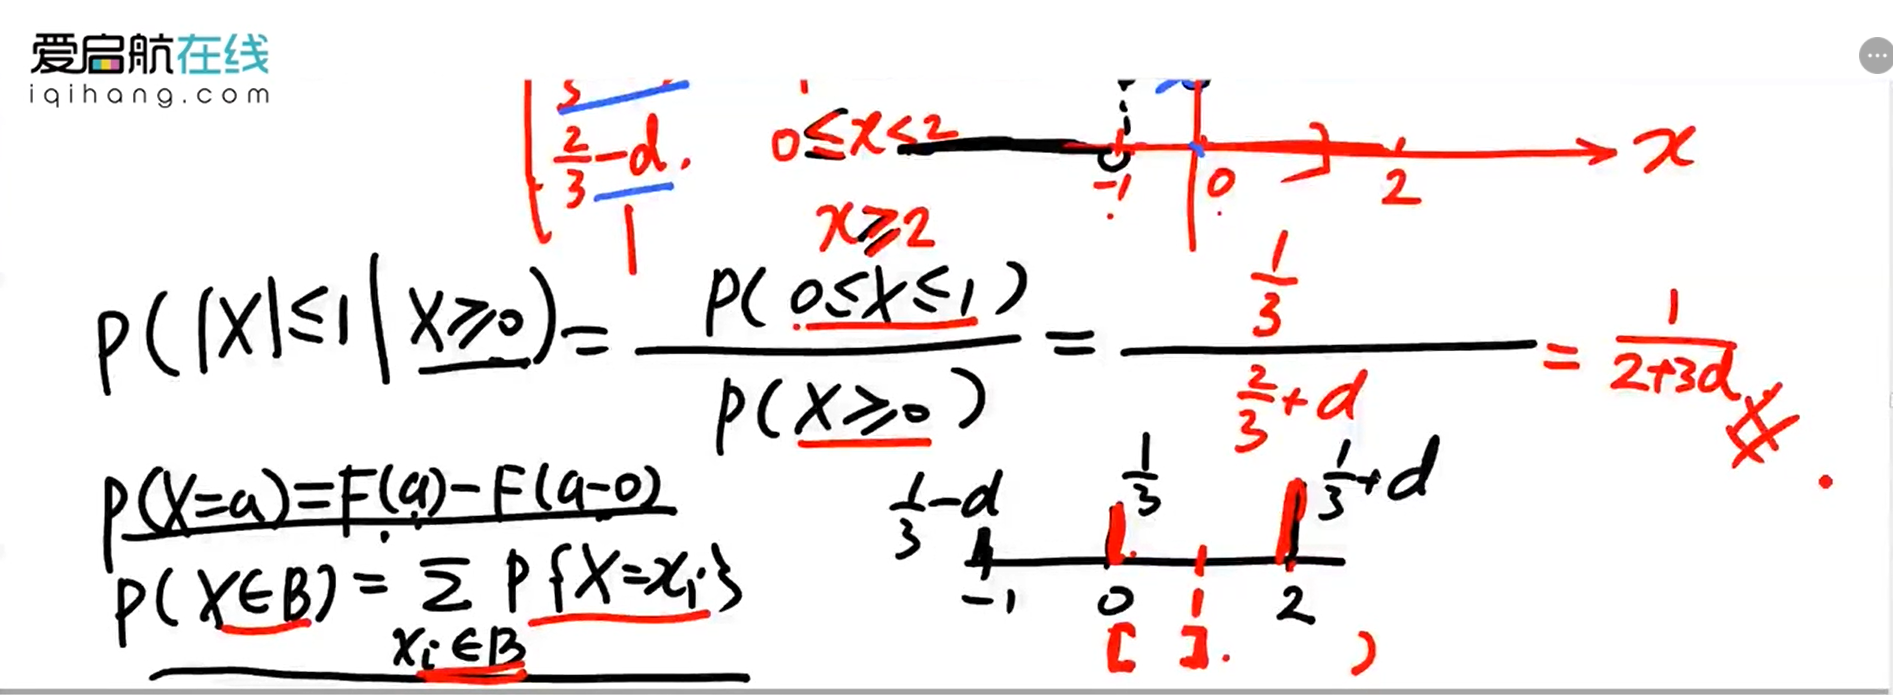 爱启航在线
iqihang.com
2/3-d. 0≤x<2
-1 0 2 x
1 x≥2
P(|X|≤1|X≥0)=P(0≤X≤1)/P(X≥0)=(1/3)/(2/3+d)=1/(2+3d)
P(X=a)=F(a)-F(a-0)
P(X∈B)=Σ P{X=xi}
xi∈B
1/3-d 1/3 1/3+d
-1 0 1 2
[ ]. )